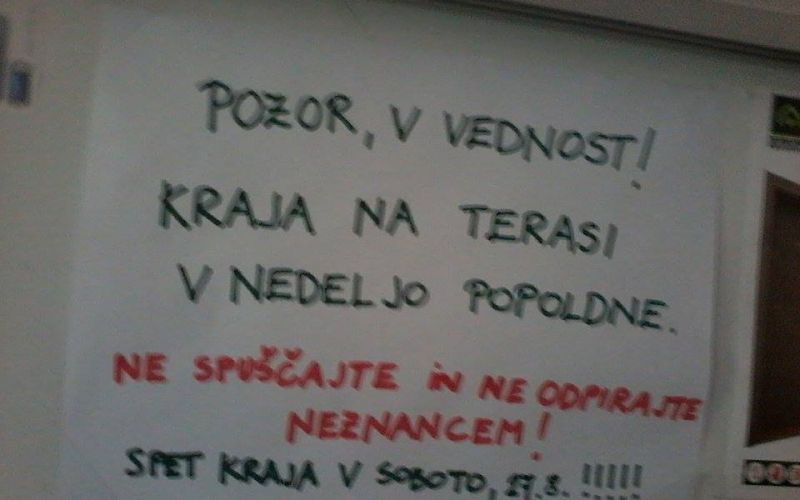 POZOR, V VEDNOST!
KRAJA NA TERASI
V NEDELJO POPOLDNE.
NE SPUŠČAJTE iN NE ODPIRAJTE
NEZNANCEM!
SPET KRAJA V SOBOTO, 27.8. !!!!!